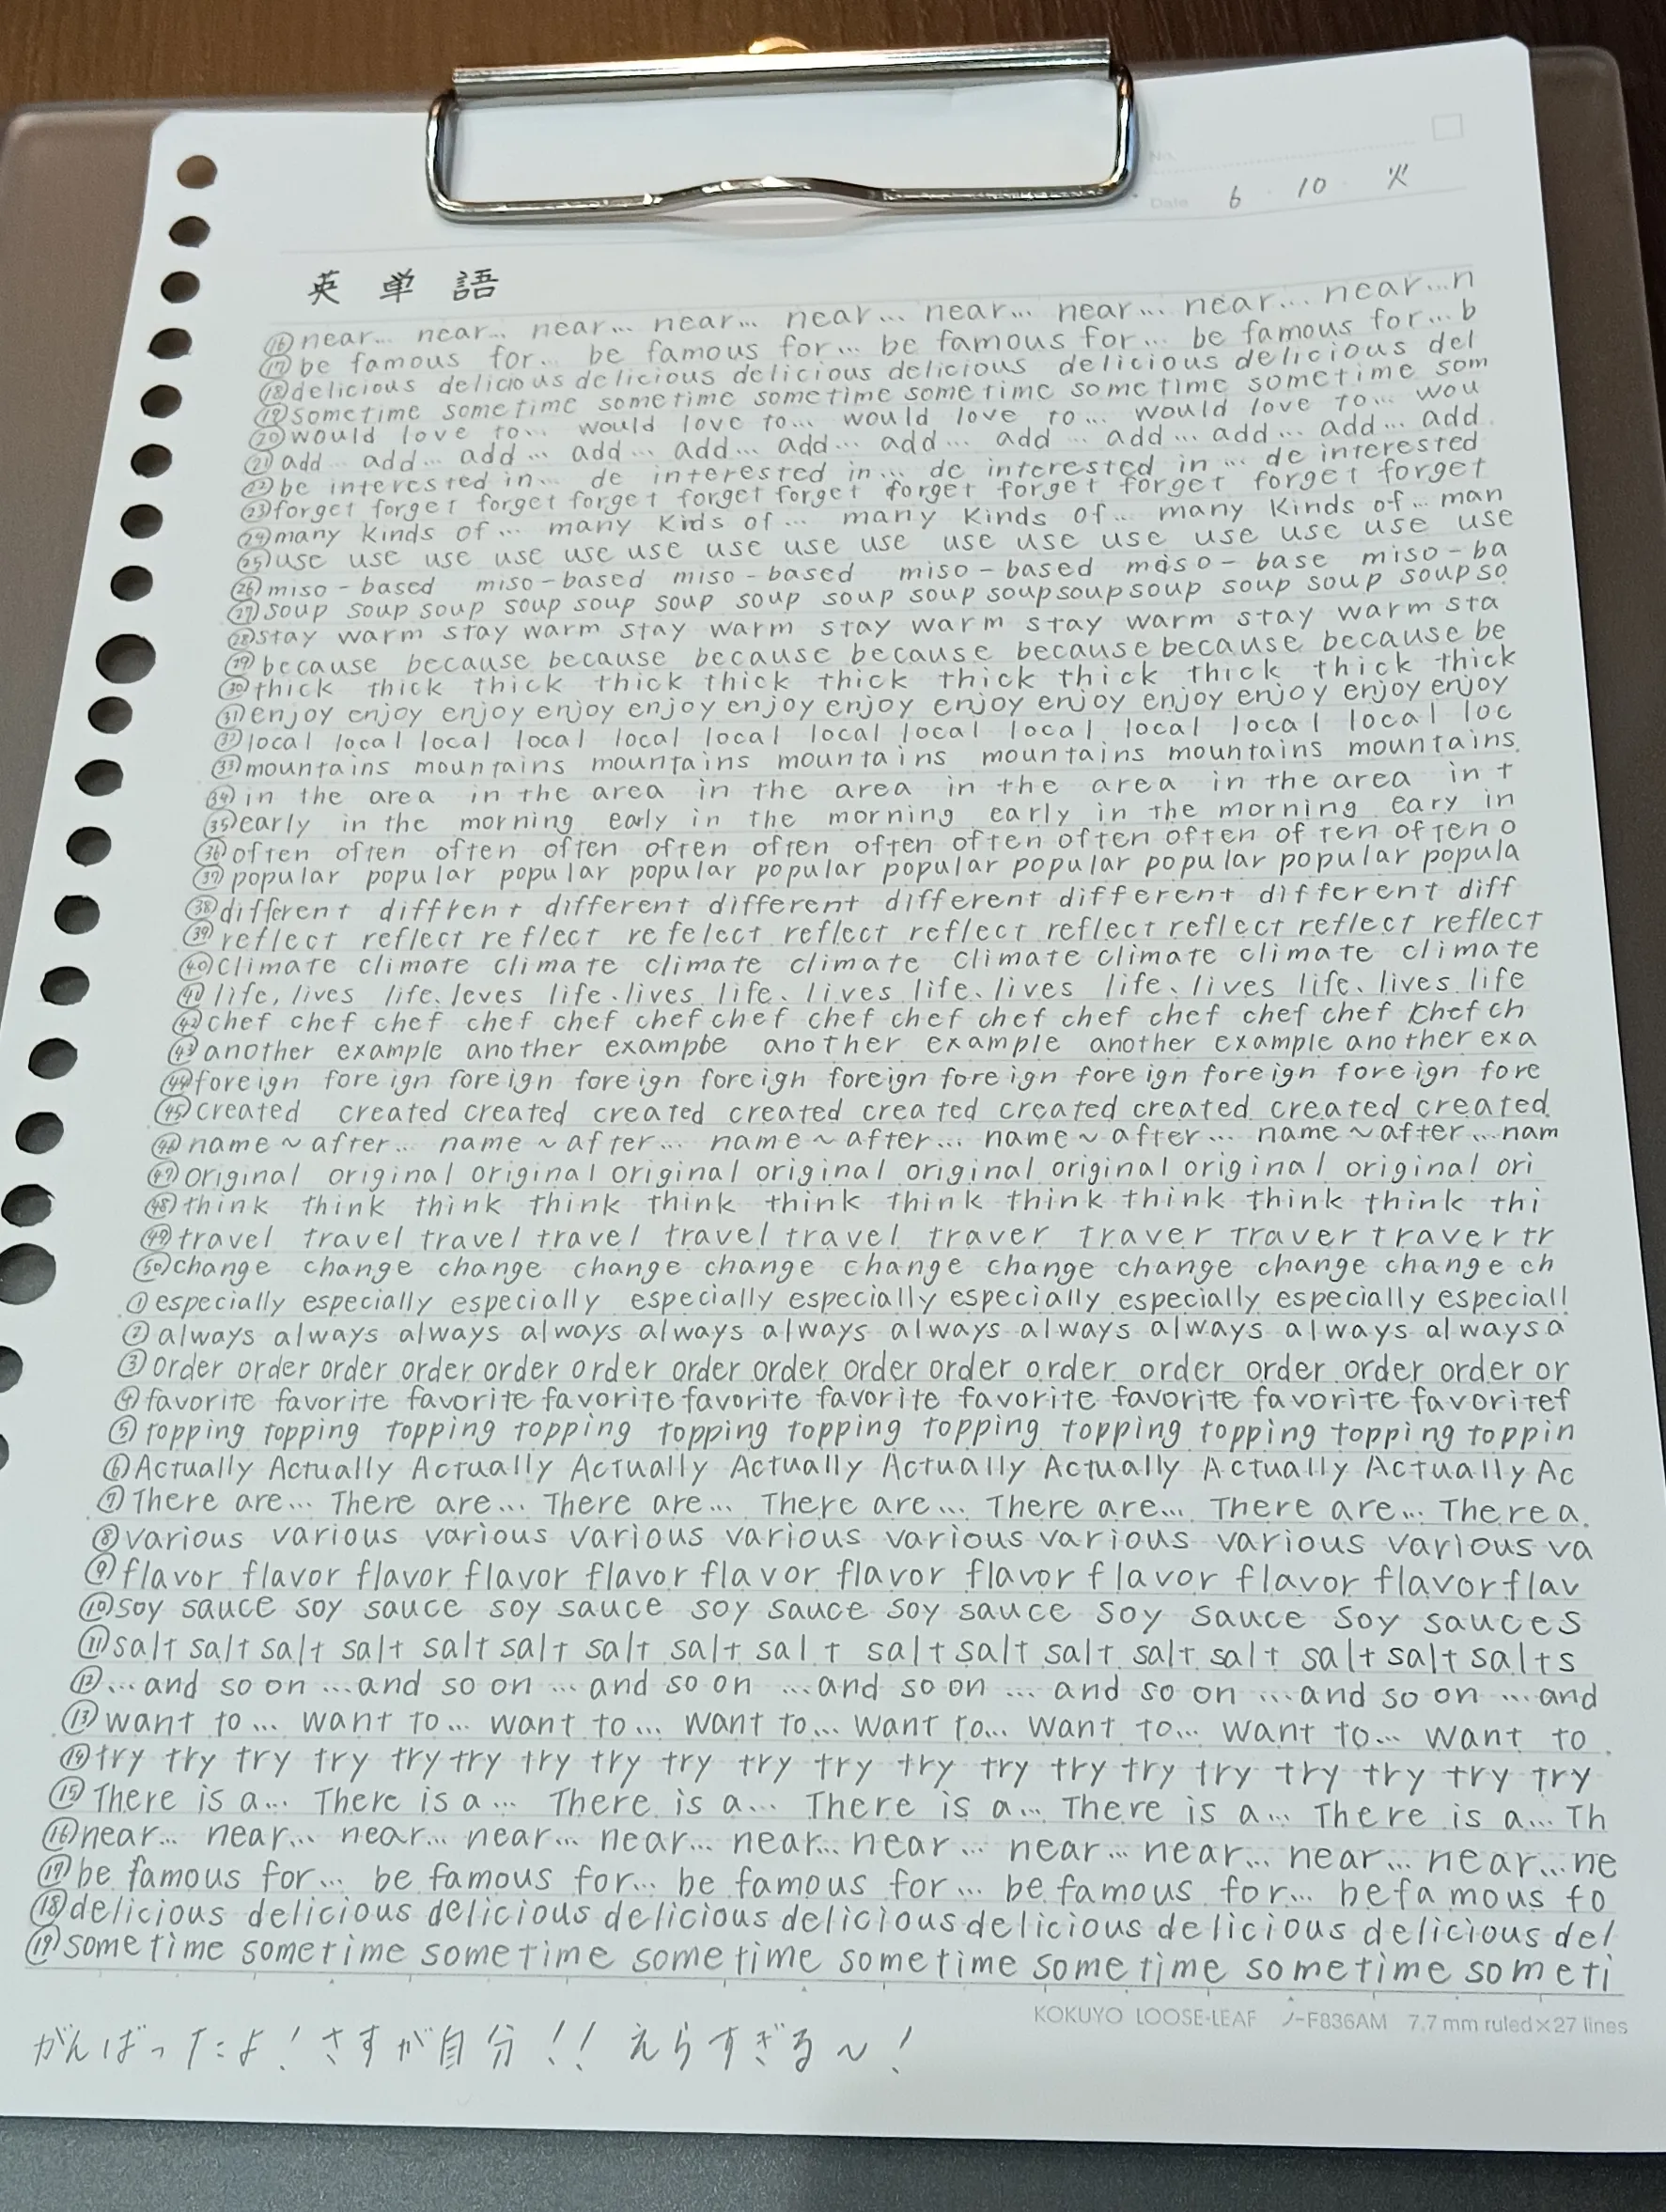 No.
Date 6 · 10 · 火
英単語
⑯near... near... near... near... near... near... near... near... near...n
⑰be famous for... be famous for... be famous for... be famous for...b
⑱delicious delicious delicious delicious delicious delicious delicious del
⑲sometime sometime sometime sometime sometime sometime sometime som
⑳would love to... would love to... would love to... would love to... wou
㉑add... add... add... add... add... add... add... add... add... add... add
㉒be interested in... de interested in... de interested in... de interested
㉓forget forget forget forget forget forget forget forget forget forget forget
㉔many kinds of... many Kinds of... many Kinds of... many Kinds of... man
㉕use use use use use use use use use use use use use use use use
㉖miso-based miso-based miso-based miso-based miso-base miso-ba
㉗soup soup soup soup soup soup soup soup soup soup soup soup soup soup so
㉘stay warm stay warm stay warm stay warm stay warm stay warm sta
㉙because because because because because because because because be
㉚thick thick thick thick thick thick thick thick thick thick thick
㉛enjoy enjoy enjoy enjoy enjoy enjoy enjoy enjoy enjoy enjoy enjoy enjoy
㉜local local local local local local local local local local local local loc
㉝mountains mountains mountains mountains mountains mountains mountains
㉞in the area in the area in the area in the area in the area in t
㉟early in the morning early in the morning early in the morning eary in
㊱often often often often often often often often often often often o
㊲popular popular popular popular popular popular popular popular popular popula
㊳different diffrent different different different different different diff
㊴reflect reflect reflect refelect reflect reflect reflect reflect reflect reflect
㊵climate climate climate climate climate climate climate climate climate
㊶life, lives life、leves life、lives life、lives life、lives life、lives life、lives life
㊷chef chef chef chef chef chef chef chef chef chef chef chef chef chef chef ch
㊸another example another exampbe another example another example another exa
㊹foreign foreign foreign foreign foreigh foreign foreign foreign foreign foreign fore
㊺created created created created created created created created created created
㊻name~after... name~after... name~after... name~after... name~after...nam
㊼original original original original original original original original original ori
㊽think think think think think think think think think think think thi
㊾travel travel travel travel travel travel traver traver traver traver tr
㊿change change change change change change change change change change ch
①especially especially especially especially especially especially especially especially especiall
②always always always always always always always always always always always a
③order order order order order order order order order order order order order order order or
④favorite favorite favorite favorite favorite favorite favorite favorite favorite favorite f
⑤topping topping topping topping topping topping topping topping topping topping toppin
⑥Actually Actually Actually Actually Actually Actually Actually Actually Actually Ac
⑦There are... There are... There are... There are... There are... There are... There a
⑧various various various various various various various various various va
⑨flavor flavor flavor flavor flavor flavor flavor flavor flavor flavor flavor flav
⑩soy sauce soy sauce soy sauce soy sauce soy sauce soy sauce soy sauce s
⑪salt salt salt salt salt salt salt salt salt salt salt salt salt salt salt salt salt s
⑫...and so on ...and so on ...and so on ...and so on ...and so on ...and so on ...and
⑬want to... want to... want to... want to... want to... want to... want to... want to
⑭try try try try try try try try try try try try try try try try try try try try
⑮There is a... There is a... There is a... There is a... There is a... There is a... Th
⑯near... near... near... near... near... near... near... near... near... near... near...ne
⑰be famous for... be famous for... be famous for... be famous for... be famous fo
⑱delicious delicious delicious delicious delicious delicious delicious delicious del
⑲sometime sometime sometime sometime sometime sometime sometime someti
KOKUYO LOOSE-LEAF ノ-F836AM 7.7 mm ruled×27 lines
がんばったよ！さすが自分！！えらすぎる〜！